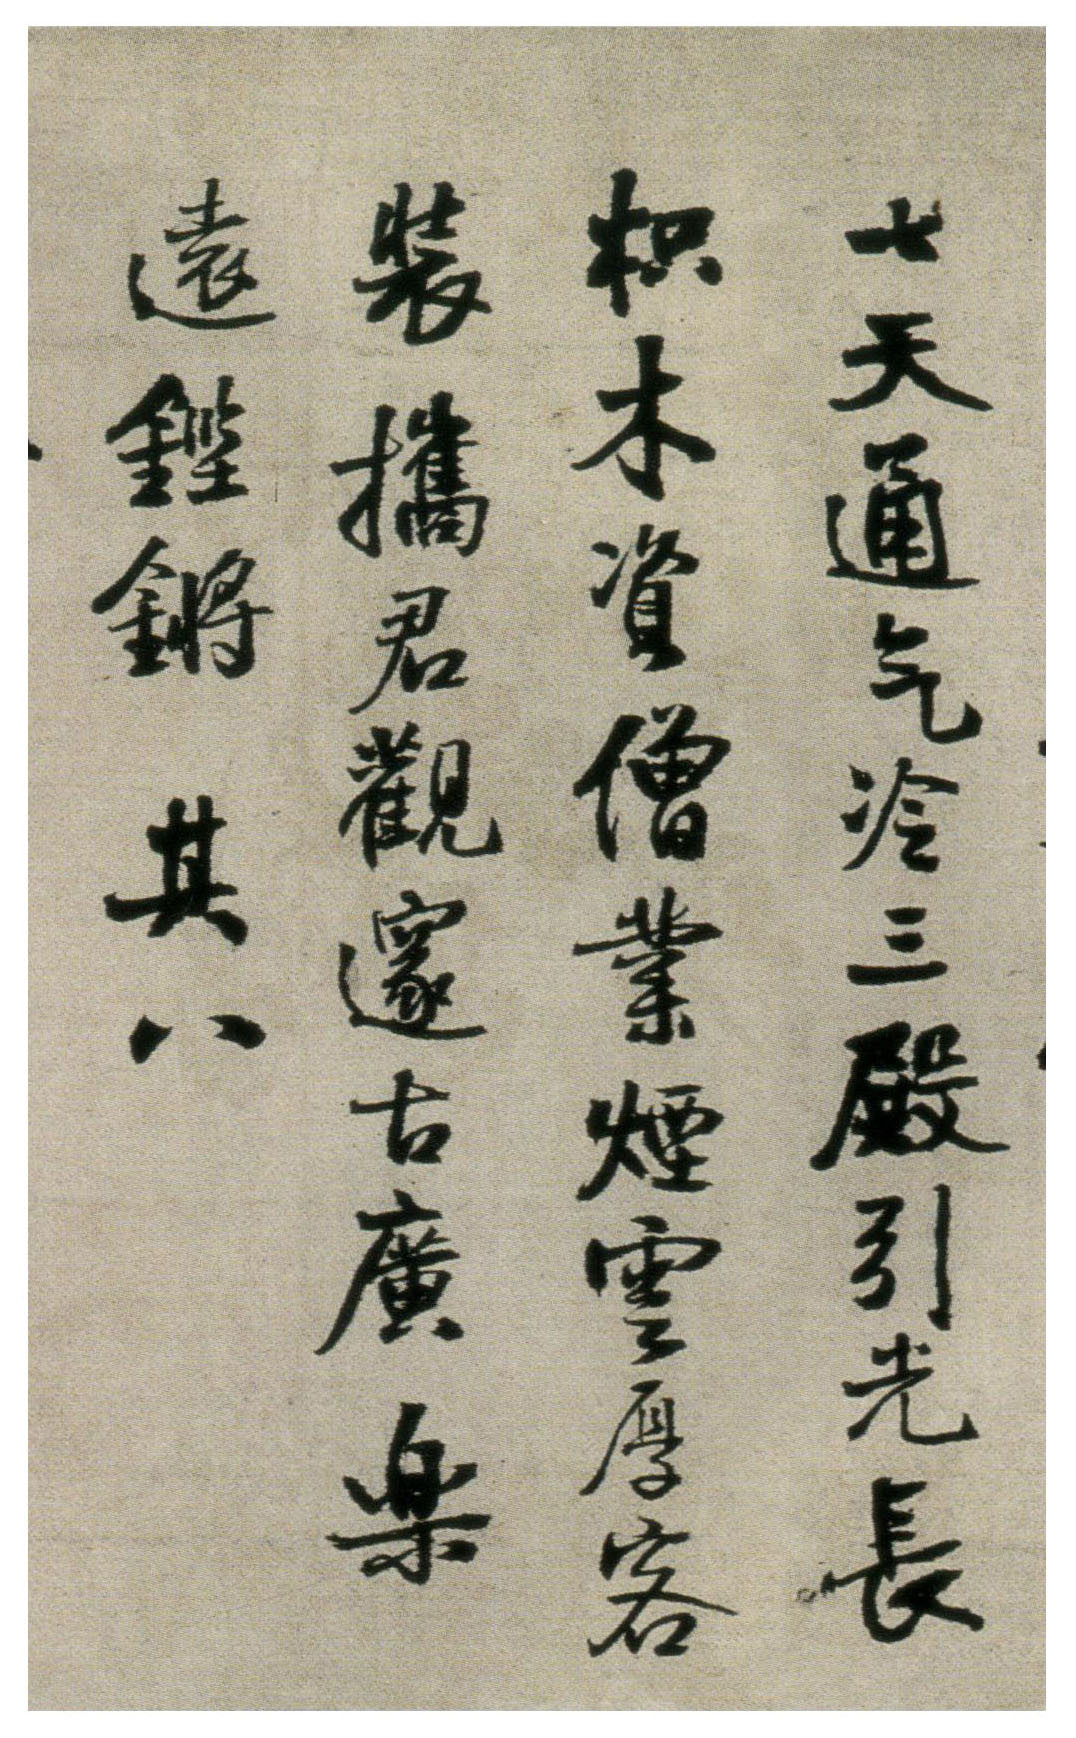 七天通气冷三殿引光長
枳木資僧業煙雲厚客
裝攜君觀邃古廣樂
遠鏗鏘其八